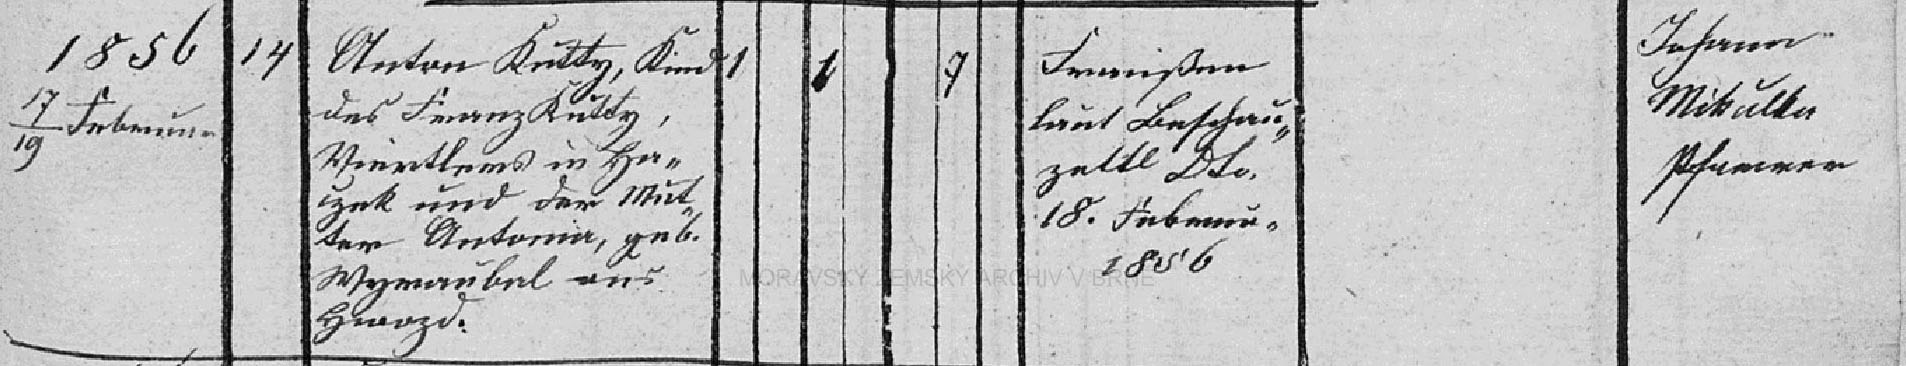 1856
17/19 Februar
14
Anton Kutty, Kind
des Franz Kutty,
Viertlers in Ha-
czek und der Mut-
ter Antonia, geb.
Wyraubal aus
Hwozd.
1
1
7
Fraißen
laut Beschau-
zettl Dto.
18. Februar
1856
Johann
Mikulka
Pfarrer
MORAVSKÝ ZEMSKÝ ARCHIV V BRNĚ